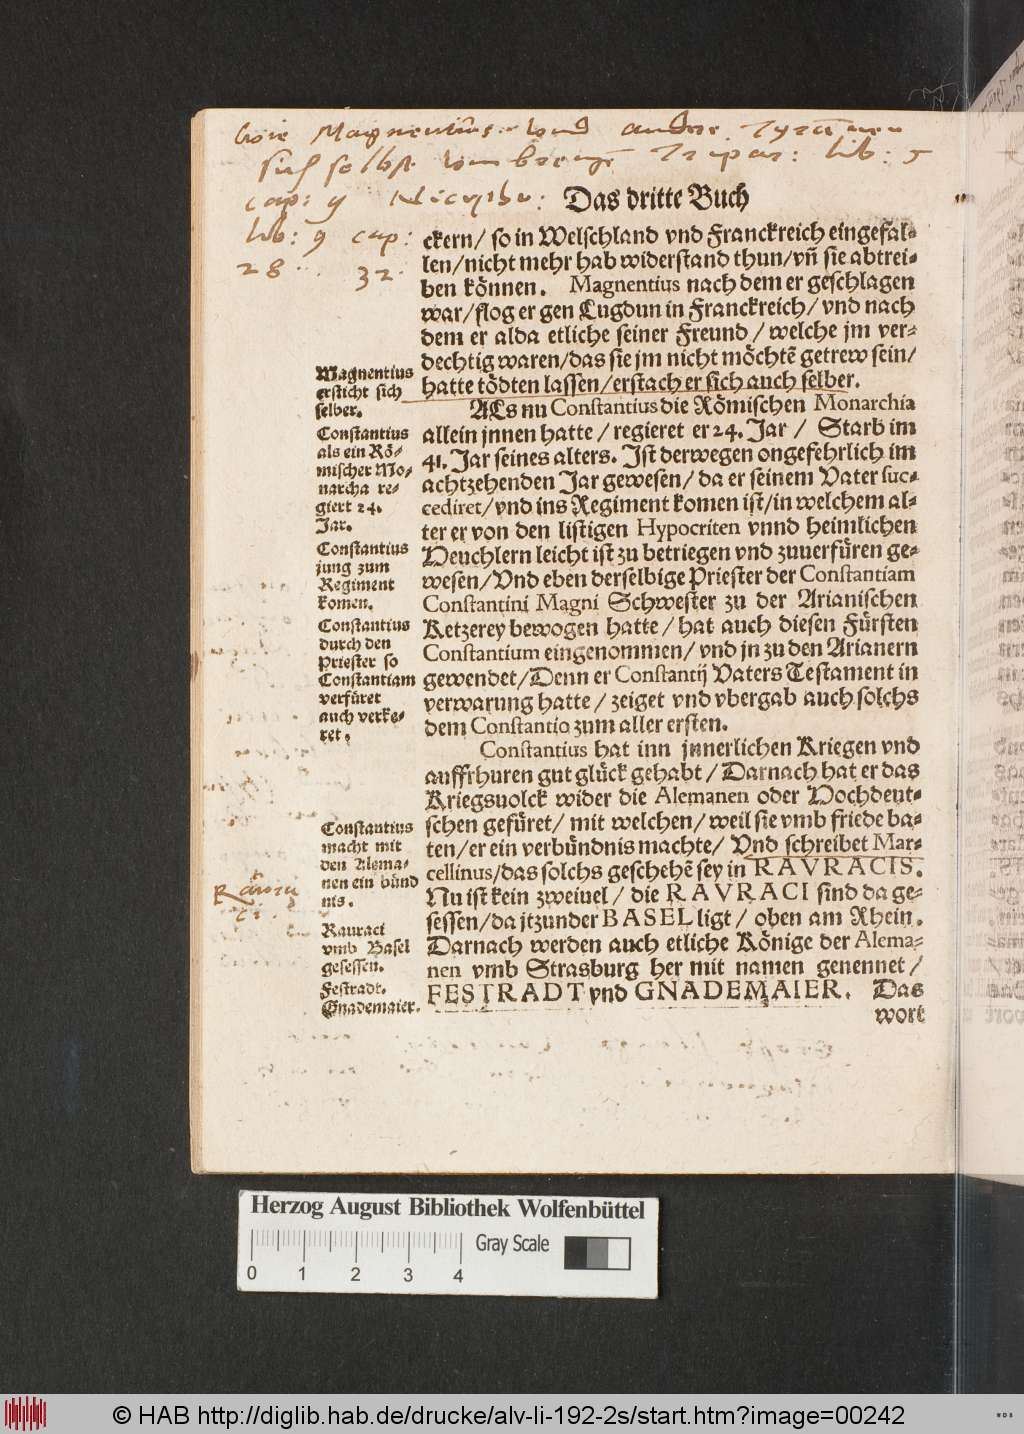 Wie Magnentius vnd andere Tyrannen
sich selbst vmbrengen Tripar: lib: 5
cap: 9 Nicepho:
lib: 9 cap:
28 32.
Das dritte Buch
ckern/ so in Welschland vnd Franckreich eingefal-
len/nicht mehr hab widerstand thun/vñ sie abtrei-
ben können. Magnentius nach dem er geschlagen
war/flog er gen Lugdun in Franckreich/ vnd nach
dem er alda etliche seiner Freund/ welche jm ver-
dechtig waren/das sie jm nicht möchtẽ getrew sein/
hatte tödten lassen/erstach er sich auch selber.
ALs nu Constantius die Römischen Monarchia
allein jnnen hatte/ regieret er 24. Jar/ Starb im
41. Jar seines alters. Ist derwegen ongefehrlich im
achtzehenden Jar gewesen/ da er seinem Vater suc-
cediret/vnd ins Regiment komen ist/in welchem al-
ter er von den listigen Hypocriten vnnd heimlichen
Heuchlern leicht ist zu betriegen vnd zuuerfüren ge-
wesen/Vnd eben derselbige Priester der Constantiam
Constantini Magni Schwester zu der Arianischen
Ketzerey bewogen hatte/ hat auch diesen Fürsten
Constantium eingenommen/ vnd jn zu den Arianern
gewendet/Denn er Constantij Vaters Testament in
verwarung hatte/ zeiget vnd vbergab auch solchs
dem Constantio zum aller ersten.
Constantius hat inn jnnerlichen Kriegen vnd
auffrhuren gut glück gehabt/ Darnach hat er das
Kriegsuolck wider die Alemanen oder Hochdeut-
schen gefüret/ mit welchen/ weil sie vmb friede ba-
ten/er ein verbündnis machte/ Vnd schreibet Mar-
cellinus/das solchs geschehẽ sey in RAVRACIS.
Nu ist kein zweiuel/ die RAVRACI sind da ge-
sessen/da jtzunder BASEL ligt/ oben am Rhein.
Darnach werden auch etliche Könige der Alema-
nen vmb Strasburg her mit namen genennet/
FESTRADT vnd GNADEMAIER. Das
wort
Magnentius
ersticht sich
selber.
Constantius
als ein Rö-
mischer Mo-
narcha re-
giert 24.
Jar.
Constantius
jung zum
Regiment
komen.
Constantius
durch den
Priester so
Constantiam
verfüret
auch verke-
ret.
Constantius
macht mit
den Alema-
nen ein bünd
nis.
Rauraci
vmb Basel
gesessen.
Festradt.
Gnademaier.
Raura
ci.
Herzog August Bibliothek Wolfenbüttel
Gray Scale
0 1 2 3 4
© HAB http://diglib.hab.de/drucke/alv-li-192-2s/start.htm?image=00242